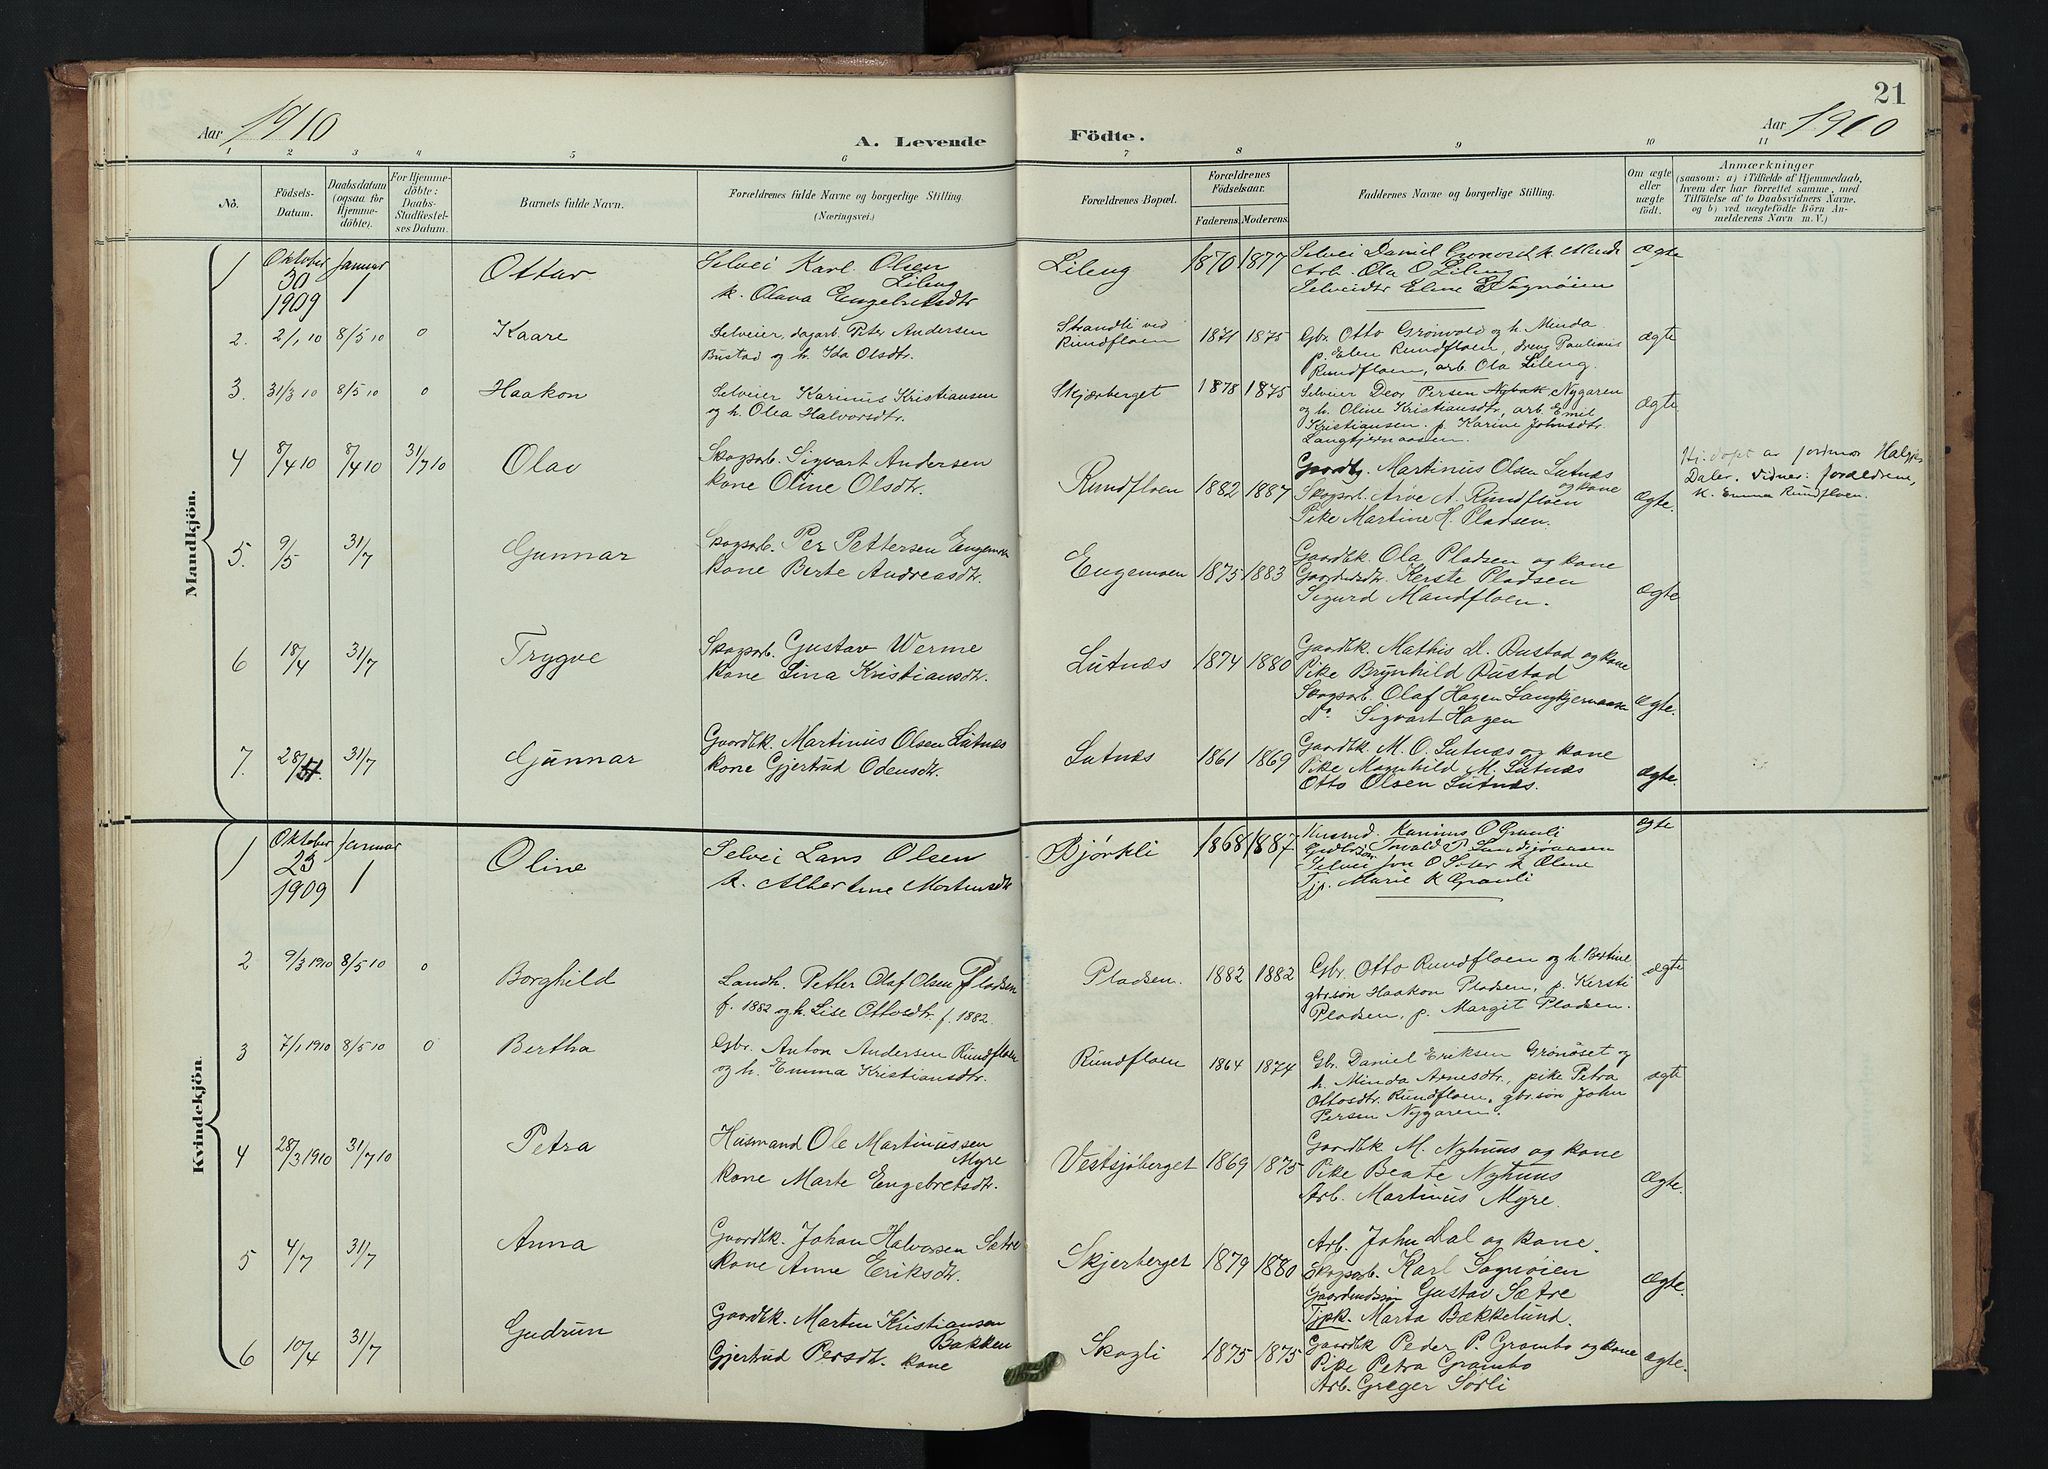 21
Aar 1910
A. Levende Födte.
Aar 1910
1 2 3 4 5 6 7 8 9 10 11
No.
Födsels-
Datum.
Daabsdatum
(ogsaa for
Hjemme-
döbte).
For Hjemme-
döbte:
Daabs-
Stadfæstel-
ses Datum.
Barnets fulde Navn.
Forældrenes fulde Navne og borgerlige Stilling.
(Næringsvei.)
Forældrenes Bopæl.
Forældrenes
Födselsaar.
Faderens. Moderens.
Faddernes Navne og borgerlige Stilling.
Om ægte
eller
uægte
födt.
Anmærkninger
(saasom: a) i Tilfælde af Hjemmedaab,
hvem der har forrettet samme, med
Tilföielse af to Daabsvidners Navne,
og b) ved uægtefödte Börn An-
melderens Navn m. V.)
Mandkjön.
1 Oktober 30 1909 Januar 1 Ottar
Selvei Karl Olsen
Lileng
k. Olava Engebretsdtr
Lileng 1870 1877
Selvei Daniel k.
Arb. Ola O Lileng
Selveidtr Eline E Sagnøien
Ægte
2. 2/1 10 8/5 10 0 Kaare
Selveier, dagarb. Peter Andersen
Bustad og h. Ida Olsdtr.
Strandli ved
Rundfloen 1871 1875
Gbr. Otto Grönvold og h. Minda
p. Elen Rundfloen, dreng Paulinus
Rundfloen, arb. Ola Lileng.
ægte
3. 31/3 10 8/5 10 0 Haakon
Selveier Karinus Kristiansen
og h. Olea Halvorsdtr.
Skjærberget 1878 1875
Selveier Persen Nybak Nygaren
og h. Oline Kristiansdtr, arb. Emil
Kristiansen. p. Karine Johnsdtr.
Langtjernaasen.
ægte
4 8/4 10 8/4 10 31/7 10 Olav
Skogsarb. Sigvart Andersen
kone Oline Olsdtr.
Rundfloen 1882 1887
Gaardbr. Martinus Olsen Lutnæs
og kone
Skogsarb. Arve A. Rundfloen
Pike Martine H. Pladsen.
Ægte.
Hj: døpt av jordmor
Daler. Vidner: forældrene,
k. Emma Rundfloen.
5. 9/5 31/7 Gunnar
Skogsarb. Per Pettersen Engemoen
kone Berte Andreasdtr.
Engemoen 1875 1883
Gaardbk. Ola Pladsen og kone
Gaardmdtr. Kerste Pladsen
Sigurd Mandfloen.
ægte
6 18/4 31/7 Trygve
Skogsarb. Gustav Werme
kone Lina Kristiansdtr.
Lutnæs 1874 1880
Gaardbk. Mathis M. Bustad og kone
Pike Brynhild Bustad
Skogsarb. Olaf Hagen Langtjernaasen
Do Sigvart Hagen
Ægte.
7. 31/7 Gunnar
Gaardbk. Martinus Olsen Lutnæs
kone Gjertrud Odensdtr.
Lutnæs 1861 1869
Gaardbk M. O. Lutnæs og kone
Pike Magnhild M. Lutnæs
Otto Olsen Lutnæs.
Ægte.
Kvindekjön.
1 Oktober 25 1909 Januar 1 Oline
Selvei Lars Olsen
k. Albertine Mortensdtr
Bjørkli 1868 1887
Husmd. Karinus O Granli
Selvei Jon O Sæter k Oline
Tjp. Marie K Granli
ægte
2 9/3 1910 8/5 10 0 Borghild
Landh. Petter Olaf Olsen Pladsen
f. 1882 og h. Lise Ottosdtr. f. 1882.
Pladsen. 1882 1882
Gbr. Otto Rundfloen og h. Bertine
gbrsøn Haakon Pladsen, p. Kersti
Pladsen, p. Margit Pladsen.
ægte
3 7/1 1910 8/5 10 0 Bertha
Gbr. Anton Andersen Rundfloen
og h. Emma Kristiansdtr.
Rundfloen 1864 1874
Gbr. Daniel Eriksen Grönöset og
h. Minda Arnesdtr., pike Petra
Ottosdtr. Rundfloen, gbr.søn John
Persen Nygaren.
ægte
4 28/3 1910 31/7 10 Petra
Husmand Ole Martinussen
Myre
kone Marte Engebretsdtr.
Vestsjøberget 1869 1875
Gaardbk M. Nyhuus og kone
Pike Beate Nyhuus
Arb. Martinus Myre.
Ægte.
5 4/7 31/7 Anna
Gaardbk. Johan Halvorsen Sætre
kone Anne Eriksdtr.
Skjerberget 1879 1880
Arb. John Dal og kone.
Skogsarb. Karl Sagnøien
Gaardmdssøn Gustav Sætre
Tjpk. Marta Bakkelund.
Ægte.
6 10/4 31/7 Gudrun
Gaardbk. Martin Kristiansen
Bakken
Gjertrud Persdtr. kone
Skogli 1875 1875
Gaardbk Peder P. Grambo og kone
Pike Petra Grambo
Arb. Greger Sörli
ægte.